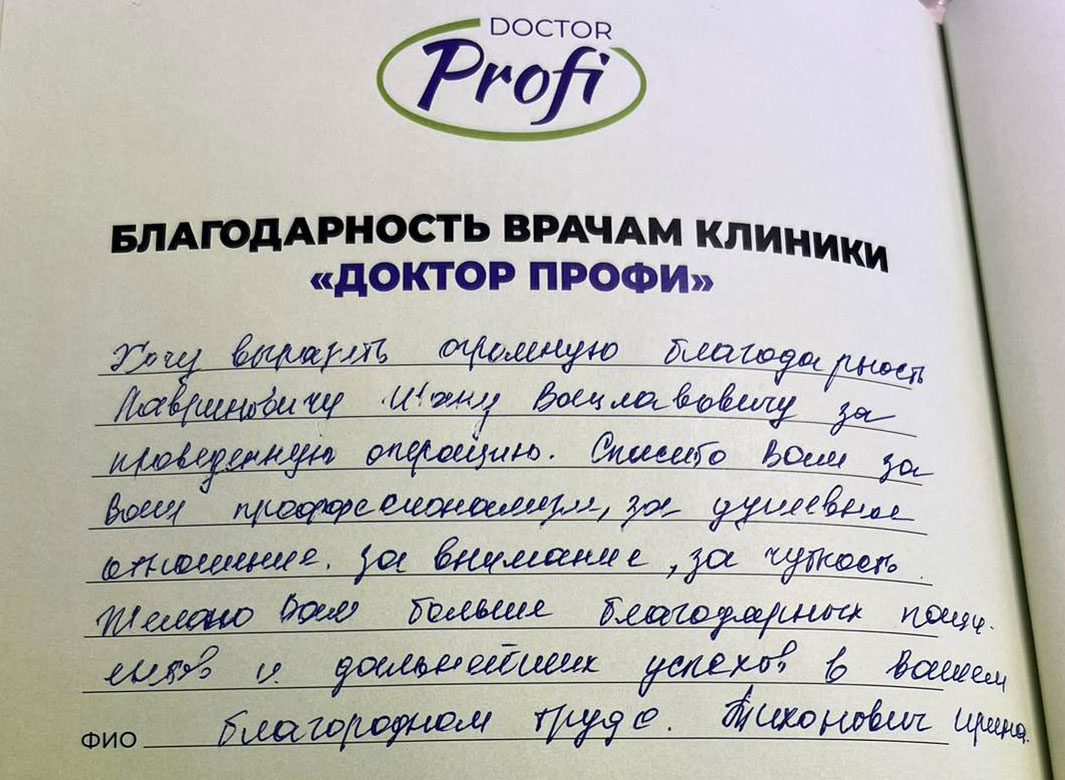 DOCTOR
Profi
БЛАГОДАРНОСТЬ ВРАЧАМ КЛИНИКИ
«ДОКТОР ПРОФИ»
Хочу выразить огромную благодарность
Лавриновичу Ивану Вацлавовичу за
проведенную операцию. Спасибо Вам за
Ваш профессионализм, за душевное
отношение. за внимание, за чуткость.
Желаю Вам больше благодарных паци-
ентов и дальнейших успехов в вашем
ФИО благородном труде. Тихонович Ирина.